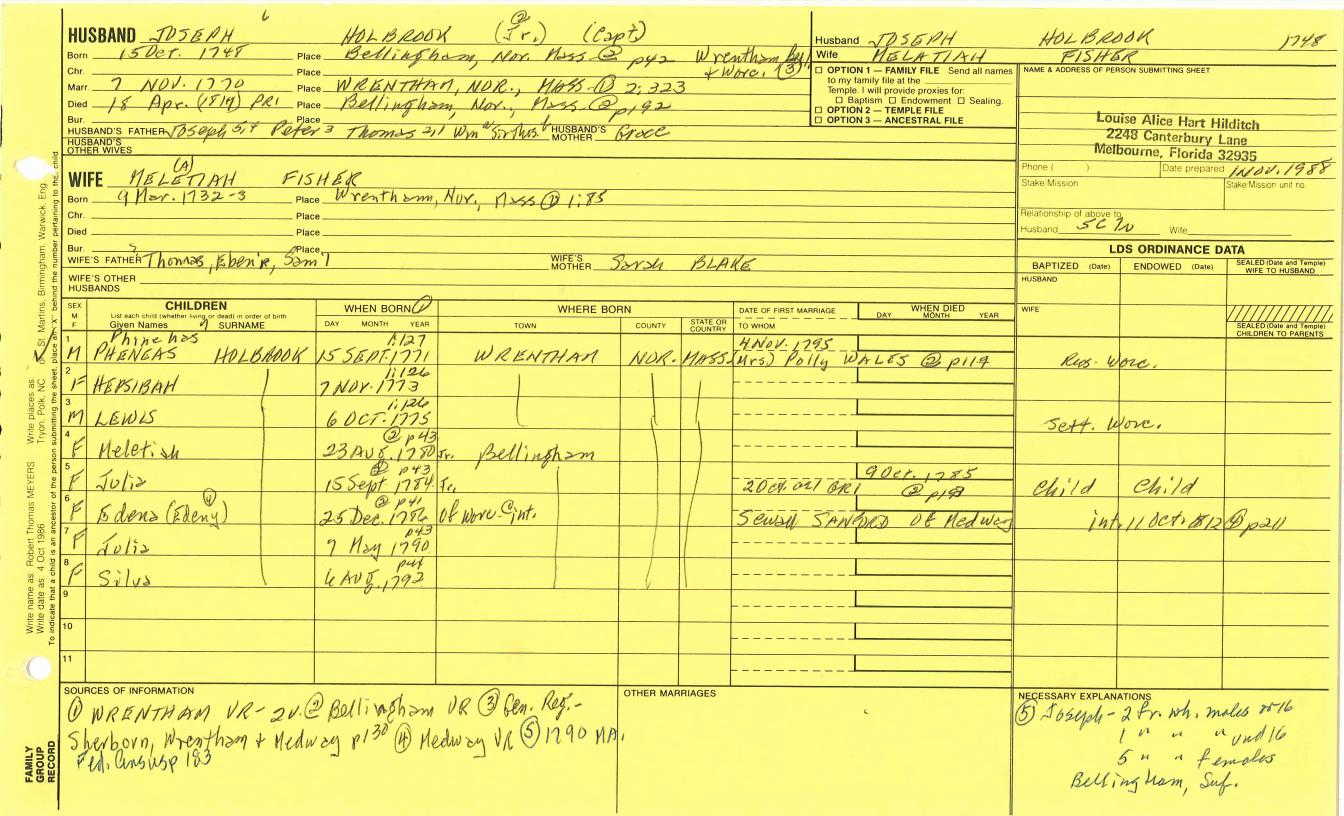 6
HUSBAND JOSEPH HOLBROOK (② Jr.) (Capt)
Born 15 Dec. 1748 Place Bellingham, Nor. Mass. ② p42 Wrentham
Chr. Place + Worc. ③
Marr. 7 NOV. 1770 Place WRENTHAM, NOR., MASS. ① 2:323
Died 18 Apr. (1819) PR1 Place Bellingham, Nor., Mass. ② p192
Bur. Place
HUSBAND'S FATHER Joseph Peter 3 Thomas HUSBAND'S MOTHER Grace
HUSBAND'S OTHER WIVES
WIFE MELETIAH (A) FISHER
Born 9 Mar. 1732-3 Place Wrentham, Nor., Mass ① 1:85
Chr. Place
Died Place
Bur. Place
WIFE'S FATHER Thomas, Eben'r, Sam'l WIFE'S MOTHER Sarah BLAKE
WIFE'S OTHER HUSBANDS
Husband JOSEPH HOLBROOK 1748
Wife MELATIAH FISHER
☐ OPTION 1 — FAMILY FILE Send all names
to my family file at the
Temple. I will provide proxies for:
☐ Baptism ☐ Endowment ☐ Sealing.
☐ OPTION 2 — TEMPLE FILE
☐ OPTION 3 — ANCESTRAL FILE
NAME & ADDRESS OF PERSON SUBMITTING SHEET
Louise Alice Hart Hilditch
2248 Canterbury Lane
Melbourne, Florida 32935
Phone ( ) Date prepared 1 NOV. 1988
Stake/Mission Stake/Mission unit no.
Relationship of above to
Husband Wife
LDS ORDINANCE DATA
BAPTIZED (Date) ENDOWED (Date) SEALED (Date and Temple) WIFE TO HUSBAND
HUSBAND
WIFE
SEALED (Date and Temple) CHILDREN TO PARENTS
SEX M F CHILDREN WHEN BORN ① WHERE BORN DATE OF FIRST MARRIAGE WHEN DIED
List each child (whether living or dead) in order of birth
Given Names SURNAME DAY MONTH YEAR TOWN COUNTY STATE OR COUNTRY TO WHOM DAY MONTH YEAR
1 Phinehas 1:127 4 NOV. 1795
M PHENEAS HOLBROOK 15 SEPT. 1771 WRENTHAM NOR. MASS. (Mrs) Polly WALES ② p119 Res. Worc.
2 1:126
F HEPSIBAH 7 NOV. 1773
3 1:126
M LEWIS 6 OCT. 1775 Sett. Worc.
4 ② p43
F Meletiah 23 AUG. 1780 Jr. Bellingham
5 p43 9 Oct. 1785
F Julia 15 Sept 1784 Jr. Child Child
6 ④ ② p41
F Edena (Edeny) 25 Dec. 1786 of Worc. int. Sewall SANFORD of Medway int. 11 Oct. 1812 ④ p211
7 p43
F Julia 9 May 1790
8 p44
F Silva 6 AUG. 1792
9
10
11
SOURCES OF INFORMATION
① WRENTHAM VR- 2v. ② Bellingham VR ③ Gen. Reg.-
Sherborn, Wrentham + Medway p130 ④ Medway VR ⑤ 1790 MA.
Fed. Census p 183
OTHER MARRIAGES
NECESSARY EXPLANATIONS
⑤ Joseph- 2 fr. wh. males ov 16
1 " " " und 16
5 " " females
Bellingham, Suf.
FAMILY GROUP RECORD
Write name as Robert Thomas MEYERS Write places as Tryon, Polk, NC
Write date as 4 Oct 1986 St. Martins, Birmingham, Warwick, Eng.
To indicate that a child is an ancestor of the person submitting the sheet, place an "X" behind the number pertaining to the child